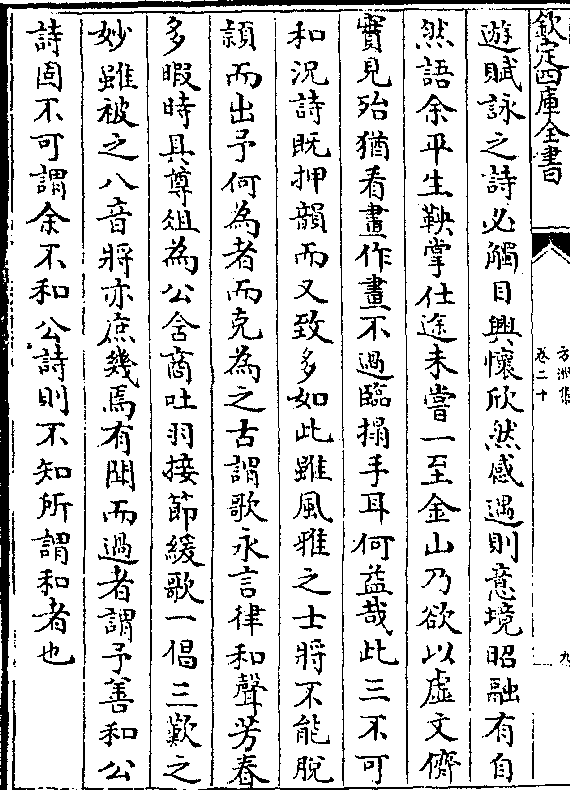 欽定四庫全書
方洲集
卷二十
九
遊賦詠之詩必觸目興懷欣然感遇則意境昭融有自
然語余平生鞅掌仕途未嘗一至金山乃欲以虛文儕
實見殆猶看畫作畫不過臨搨手耳何益哉此三不可
和況詩既押韻而又致多如此雖風雅之士將不能脫
頴而出予何為者而克為之古謂歌永言律和聲芳春
多暇時具尊俎為公含商吐羽接節緩歌一倡三歎之
妙雖被之八音將亦庶幾焉有聞而過者謂予善和公
詩固不可謂余不和公詩則不知所謂和者也